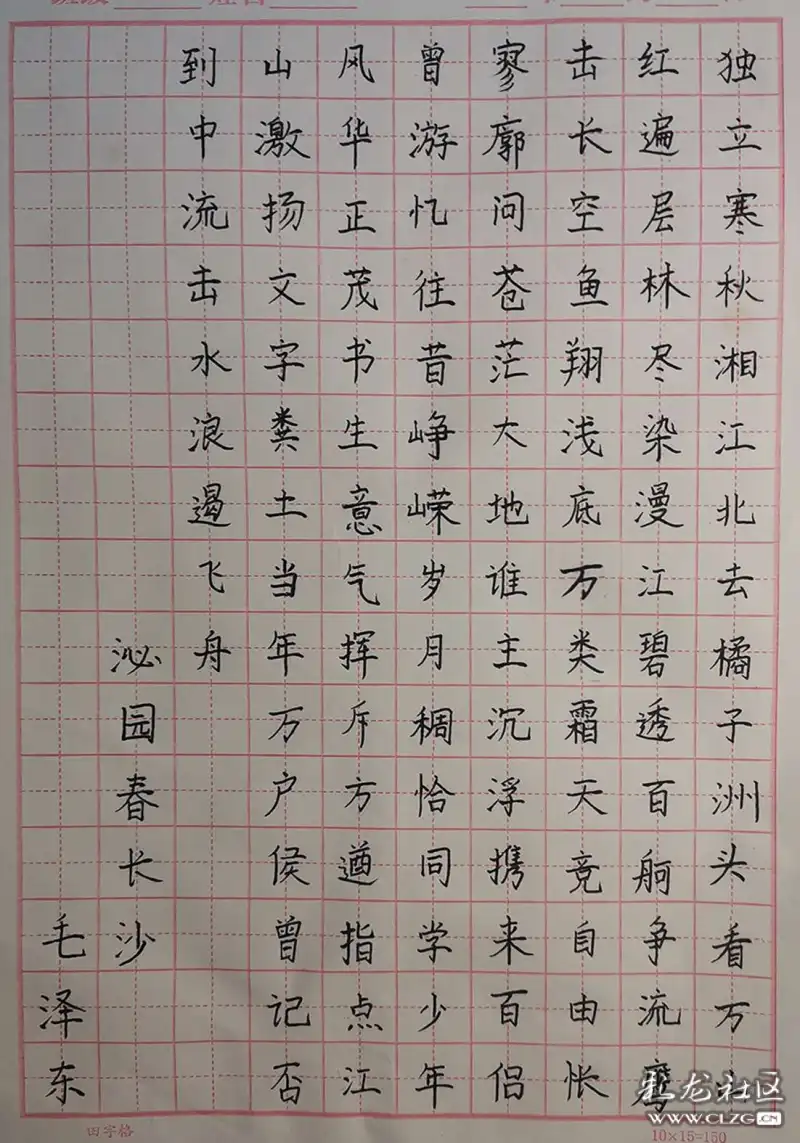 独立寒秋湘江北去橘子洲头看万山
红遍层林尽染漫江碧透百舸争流鹰
击长空鱼翔浅底万类霜天竞自由怅
寥廓问苍茫大地谁主沉浮携来百侣
曾游忆往昔峥嵘岁月稠恰同学少年
风华正茂书生意气挥斥方遒指点江
山激扬文字粪土当年万户侯曾记否
到中流击水浪遏飞舟
沁园春长沙
毛泽东
田字格
10×15=150
彩龙社区
WWW.CLZG.CN